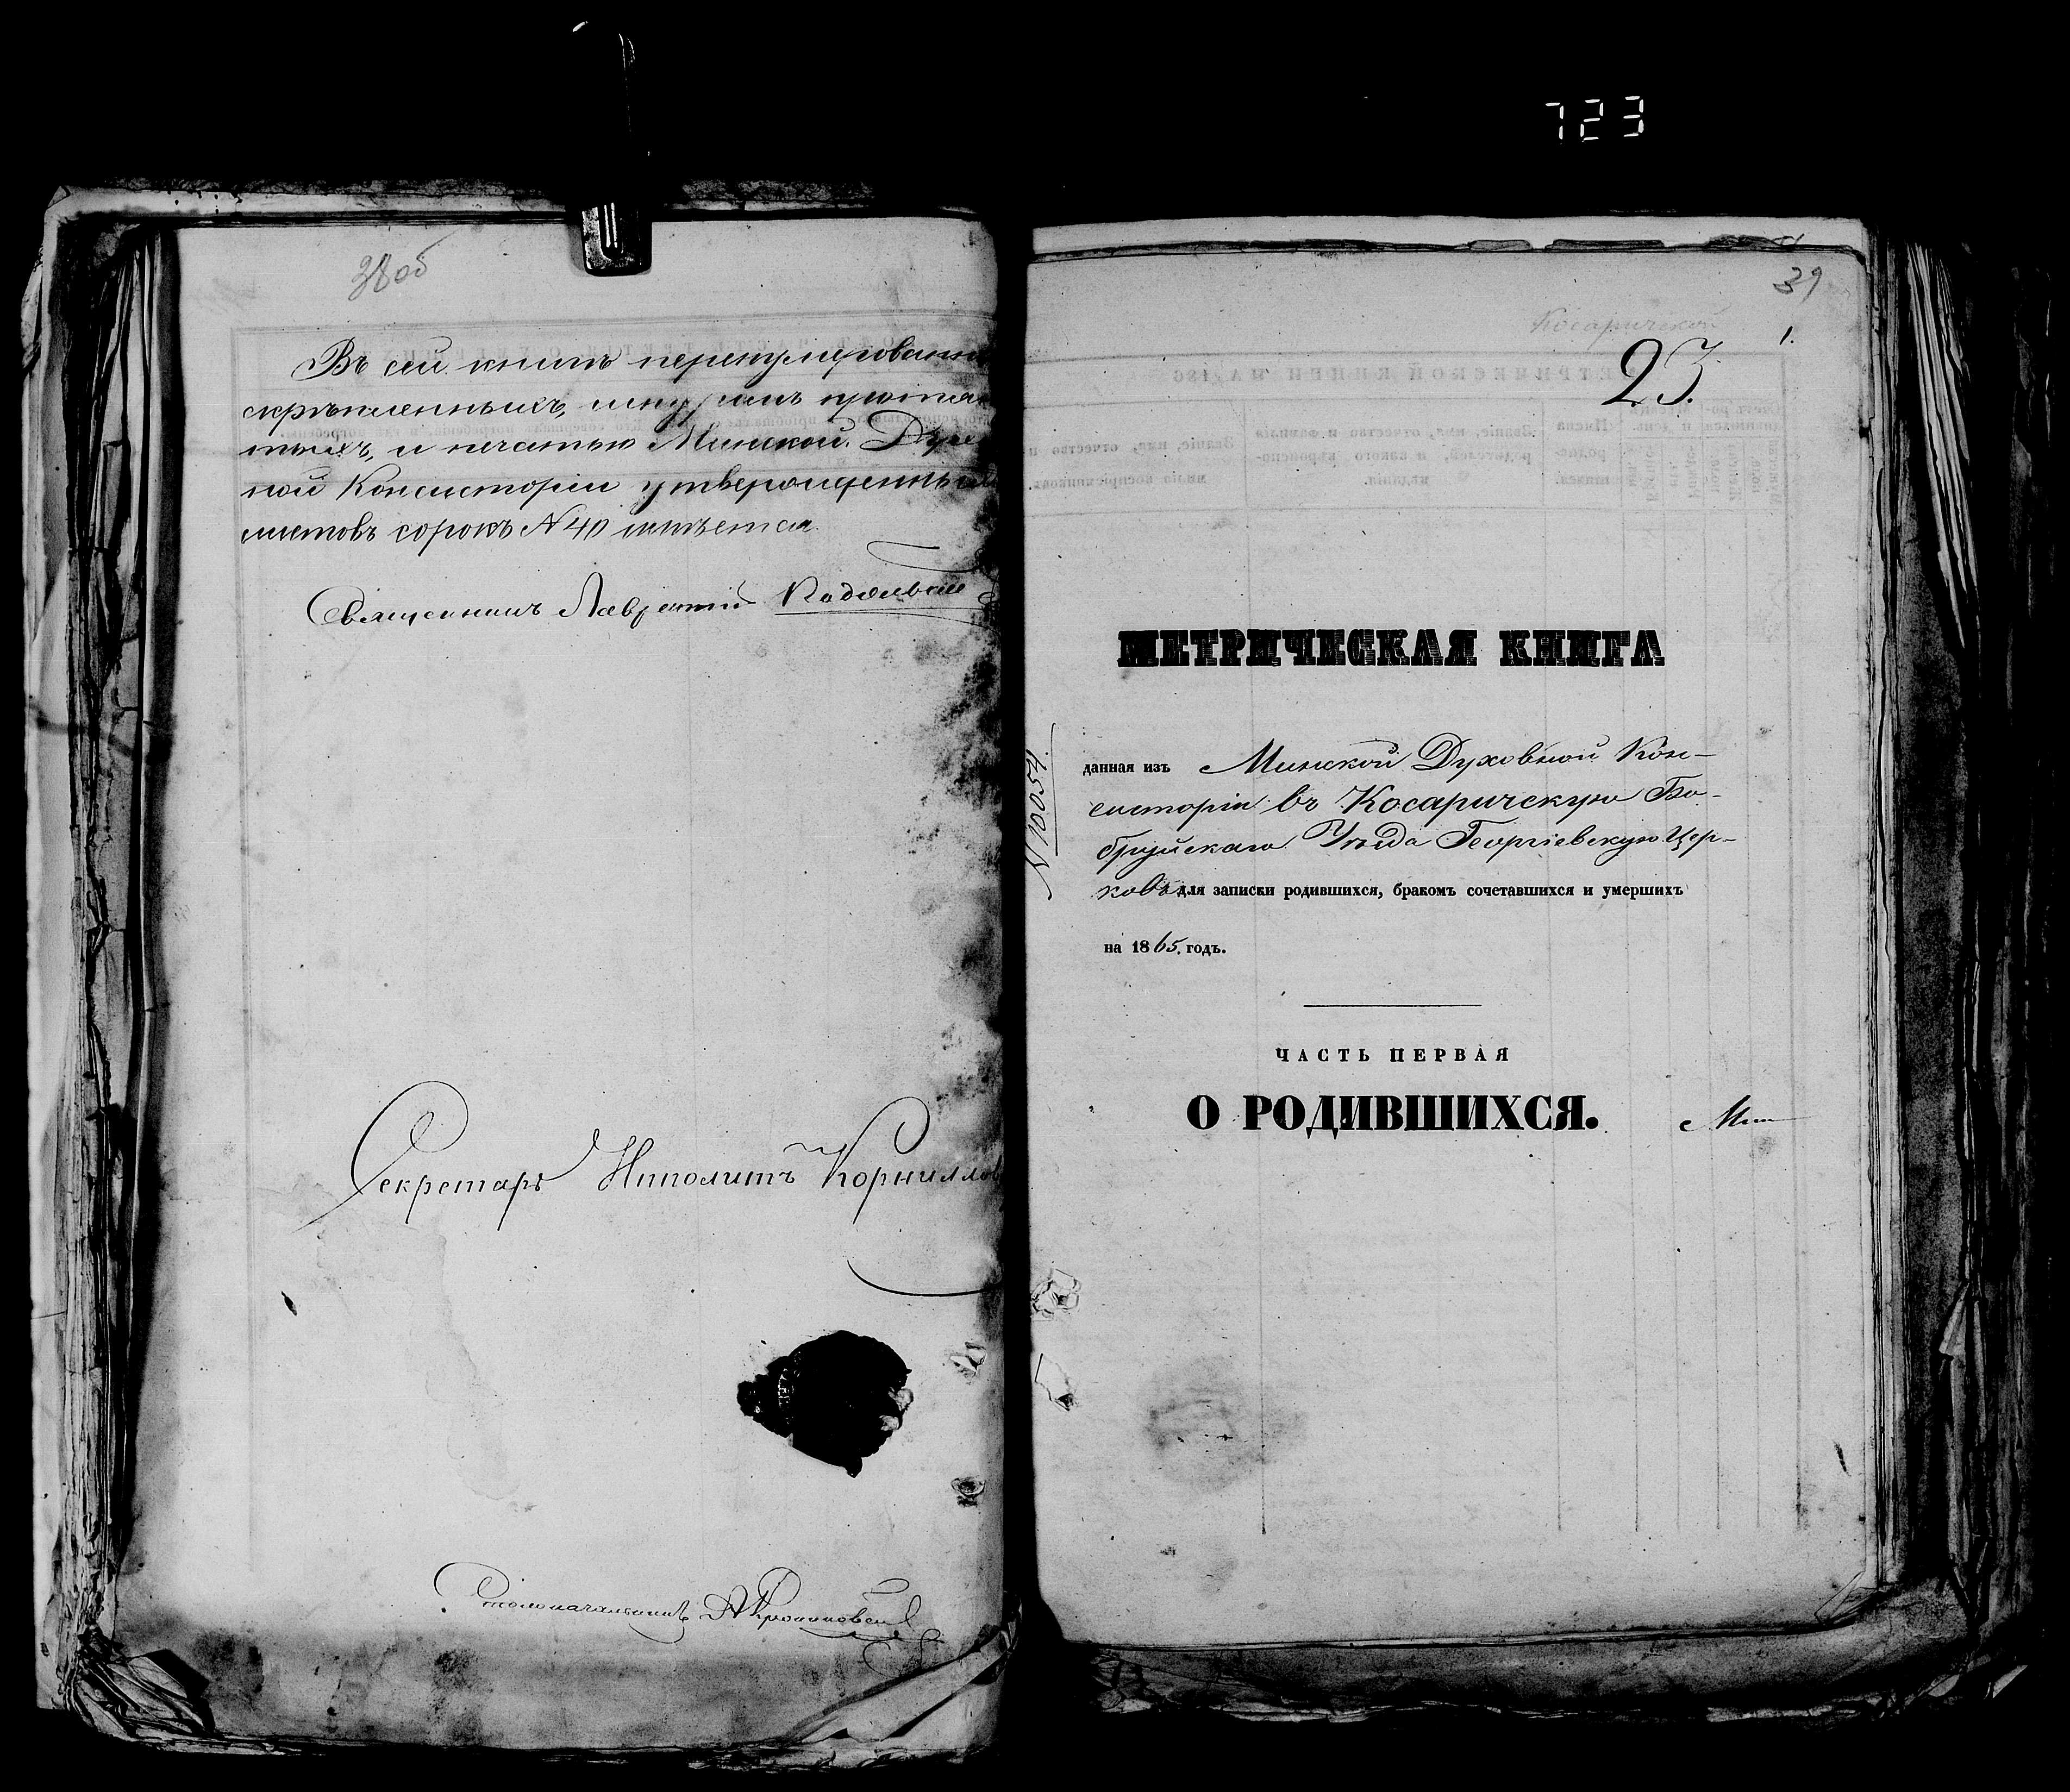 723
38об
Въ сей книгѣ перенумерованн
скрѣпленныхъ, шнуромъ
тыхъ, и печатью Минской Дух
ной Консисторіи утвержденныхъ
листовъ сорокъ N 40 имѣется.
Священникъ Лаврентій
Секретарь Ипполитъ Корнилло
Столоначальникъ
39
1.
Косаричской
23.
МЕТРИЧЕСКАЯ КНИГА
N 10054.
данная изъ Минской Духовной Кон-
систоріи въ Косаричскую Бо-
бруйскаго Уѣзда Георгіевскую Цер-
ковь для записки родившихся, бракомъ сочетавшихся и умершихъ
на 1865. годъ.
ЧАСТЬ ПЕРВАЯ
О РОДИВШИХСЯ.
Мин